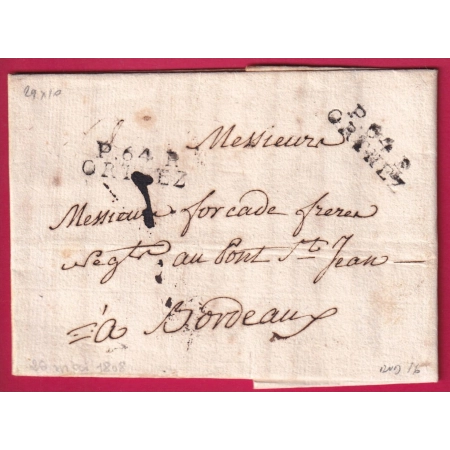 29 x 10
P.64.P.
ORTHEZ
P.64.P.
ORTHEZ
Messieurs
Messieurs forcade freres
Negts. au Pont St. Jean
à Bordeaux
1808